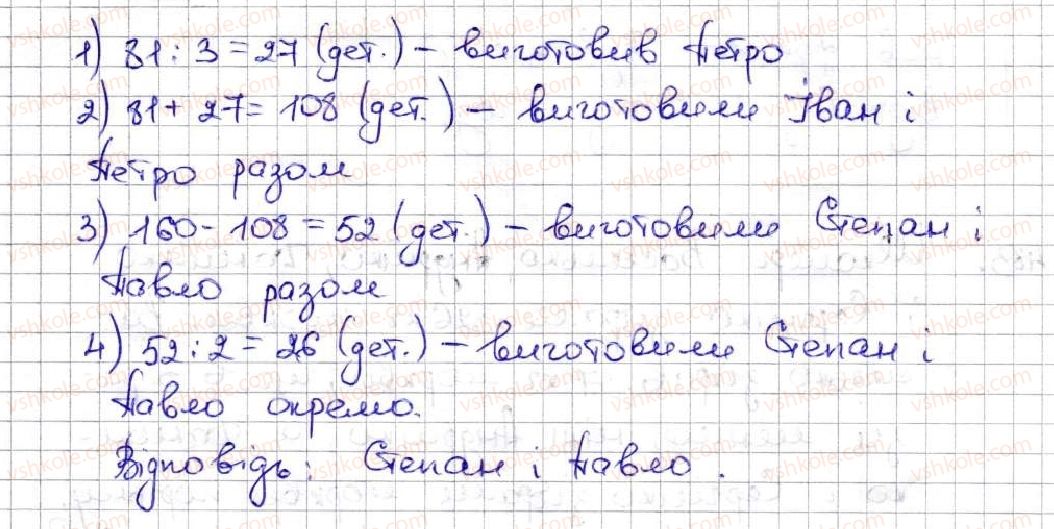 1) 81 : 3 = 27 (дет.) – виготовив Петро
2) 81 + 27 = 108 (дет.) – виготовили Іван і
Петро разом
3) 160 - 108 = 52 (дет.) – виготовили Степан і
Павло разом
4) 52 : 2 = 26 (дет.) – виготовили Степан і
Павло окремо.
Відповідь: Степан і Павло.